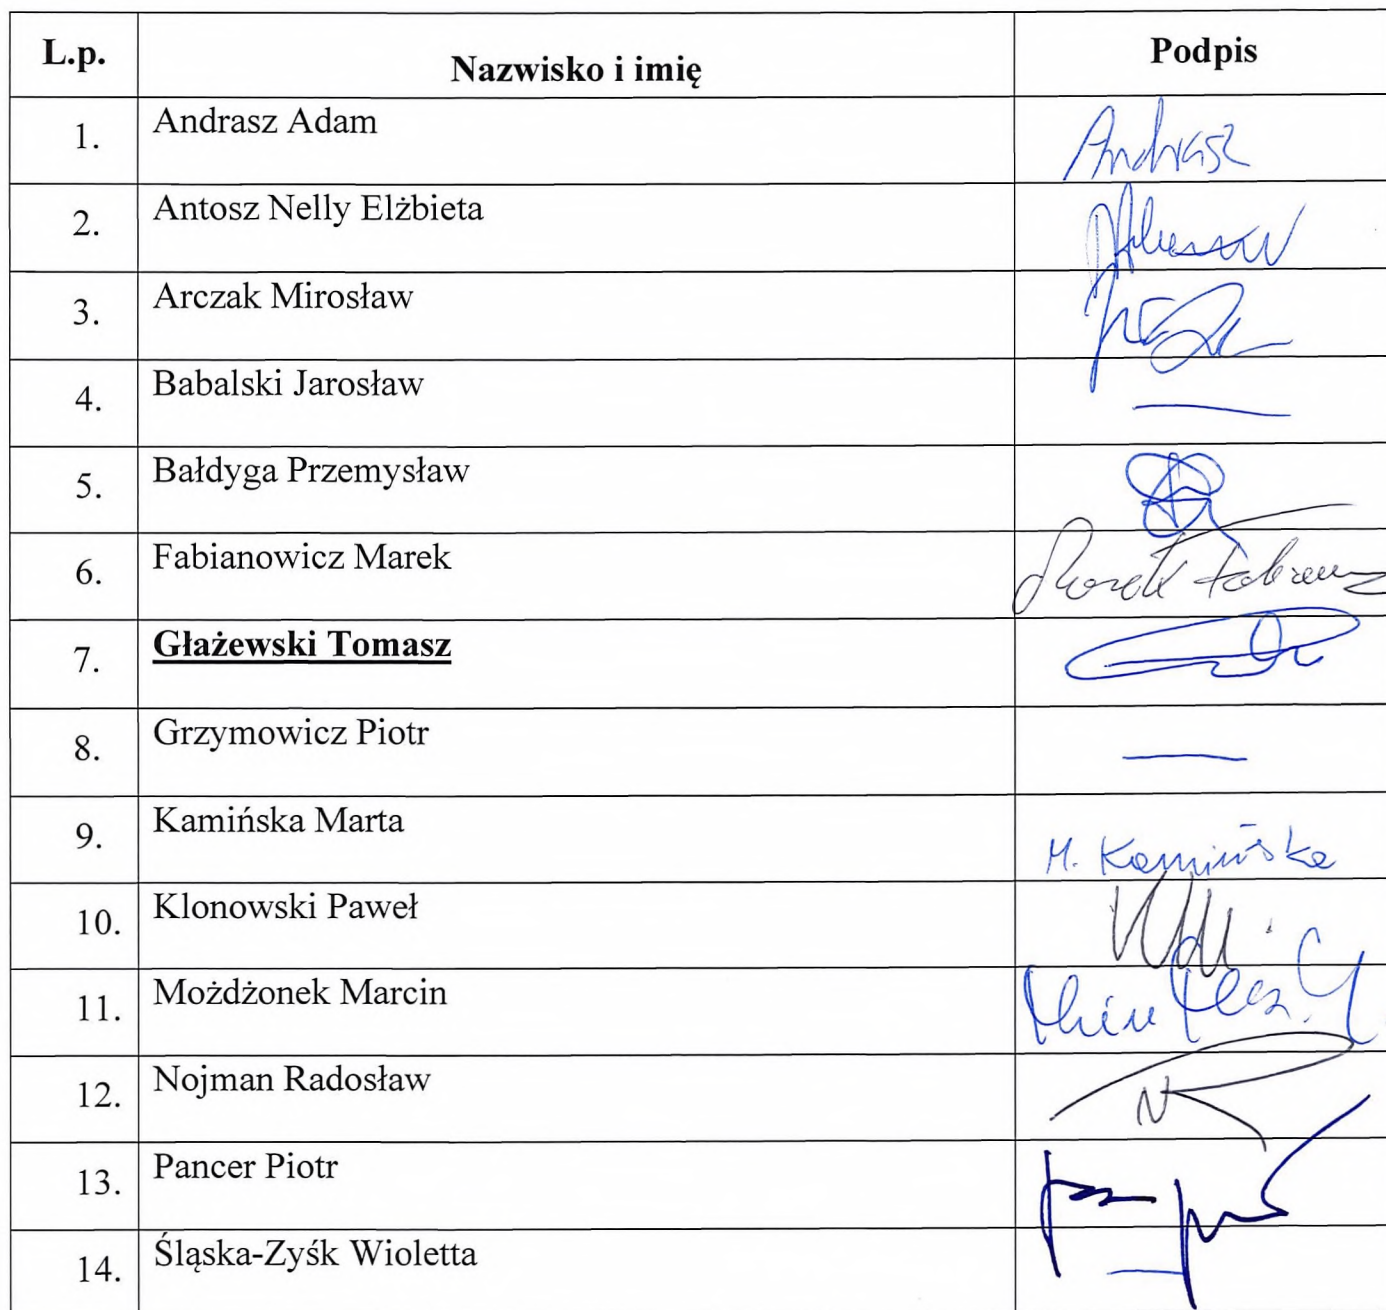 L.p. Nazwisko i imię Podpis
1. Andrasz Adam Andrasz
2. Antosz Nelly Elżbieta
3. Arczak Mirosław
4. Babalski Jarosław —
5. Bałdyga Przemysław
6. Fabianowicz Marek Marek
7. Głażewski Tomasz
8. Grzymowicz Piotr —
9. Kamińska Marta M. Kamińska
10. Klonowski Paweł
11. Możdżonek Marcin
12. Nojman Radosław
13. Pancer Piotr
14. Śląska-Zyśk Wioletta —